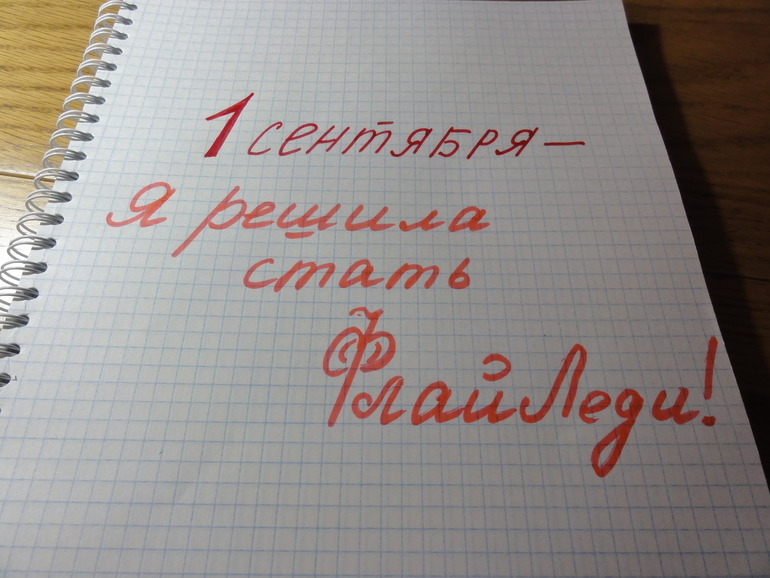 1 сентября —
Я решила
стать
ФлайЛеди!